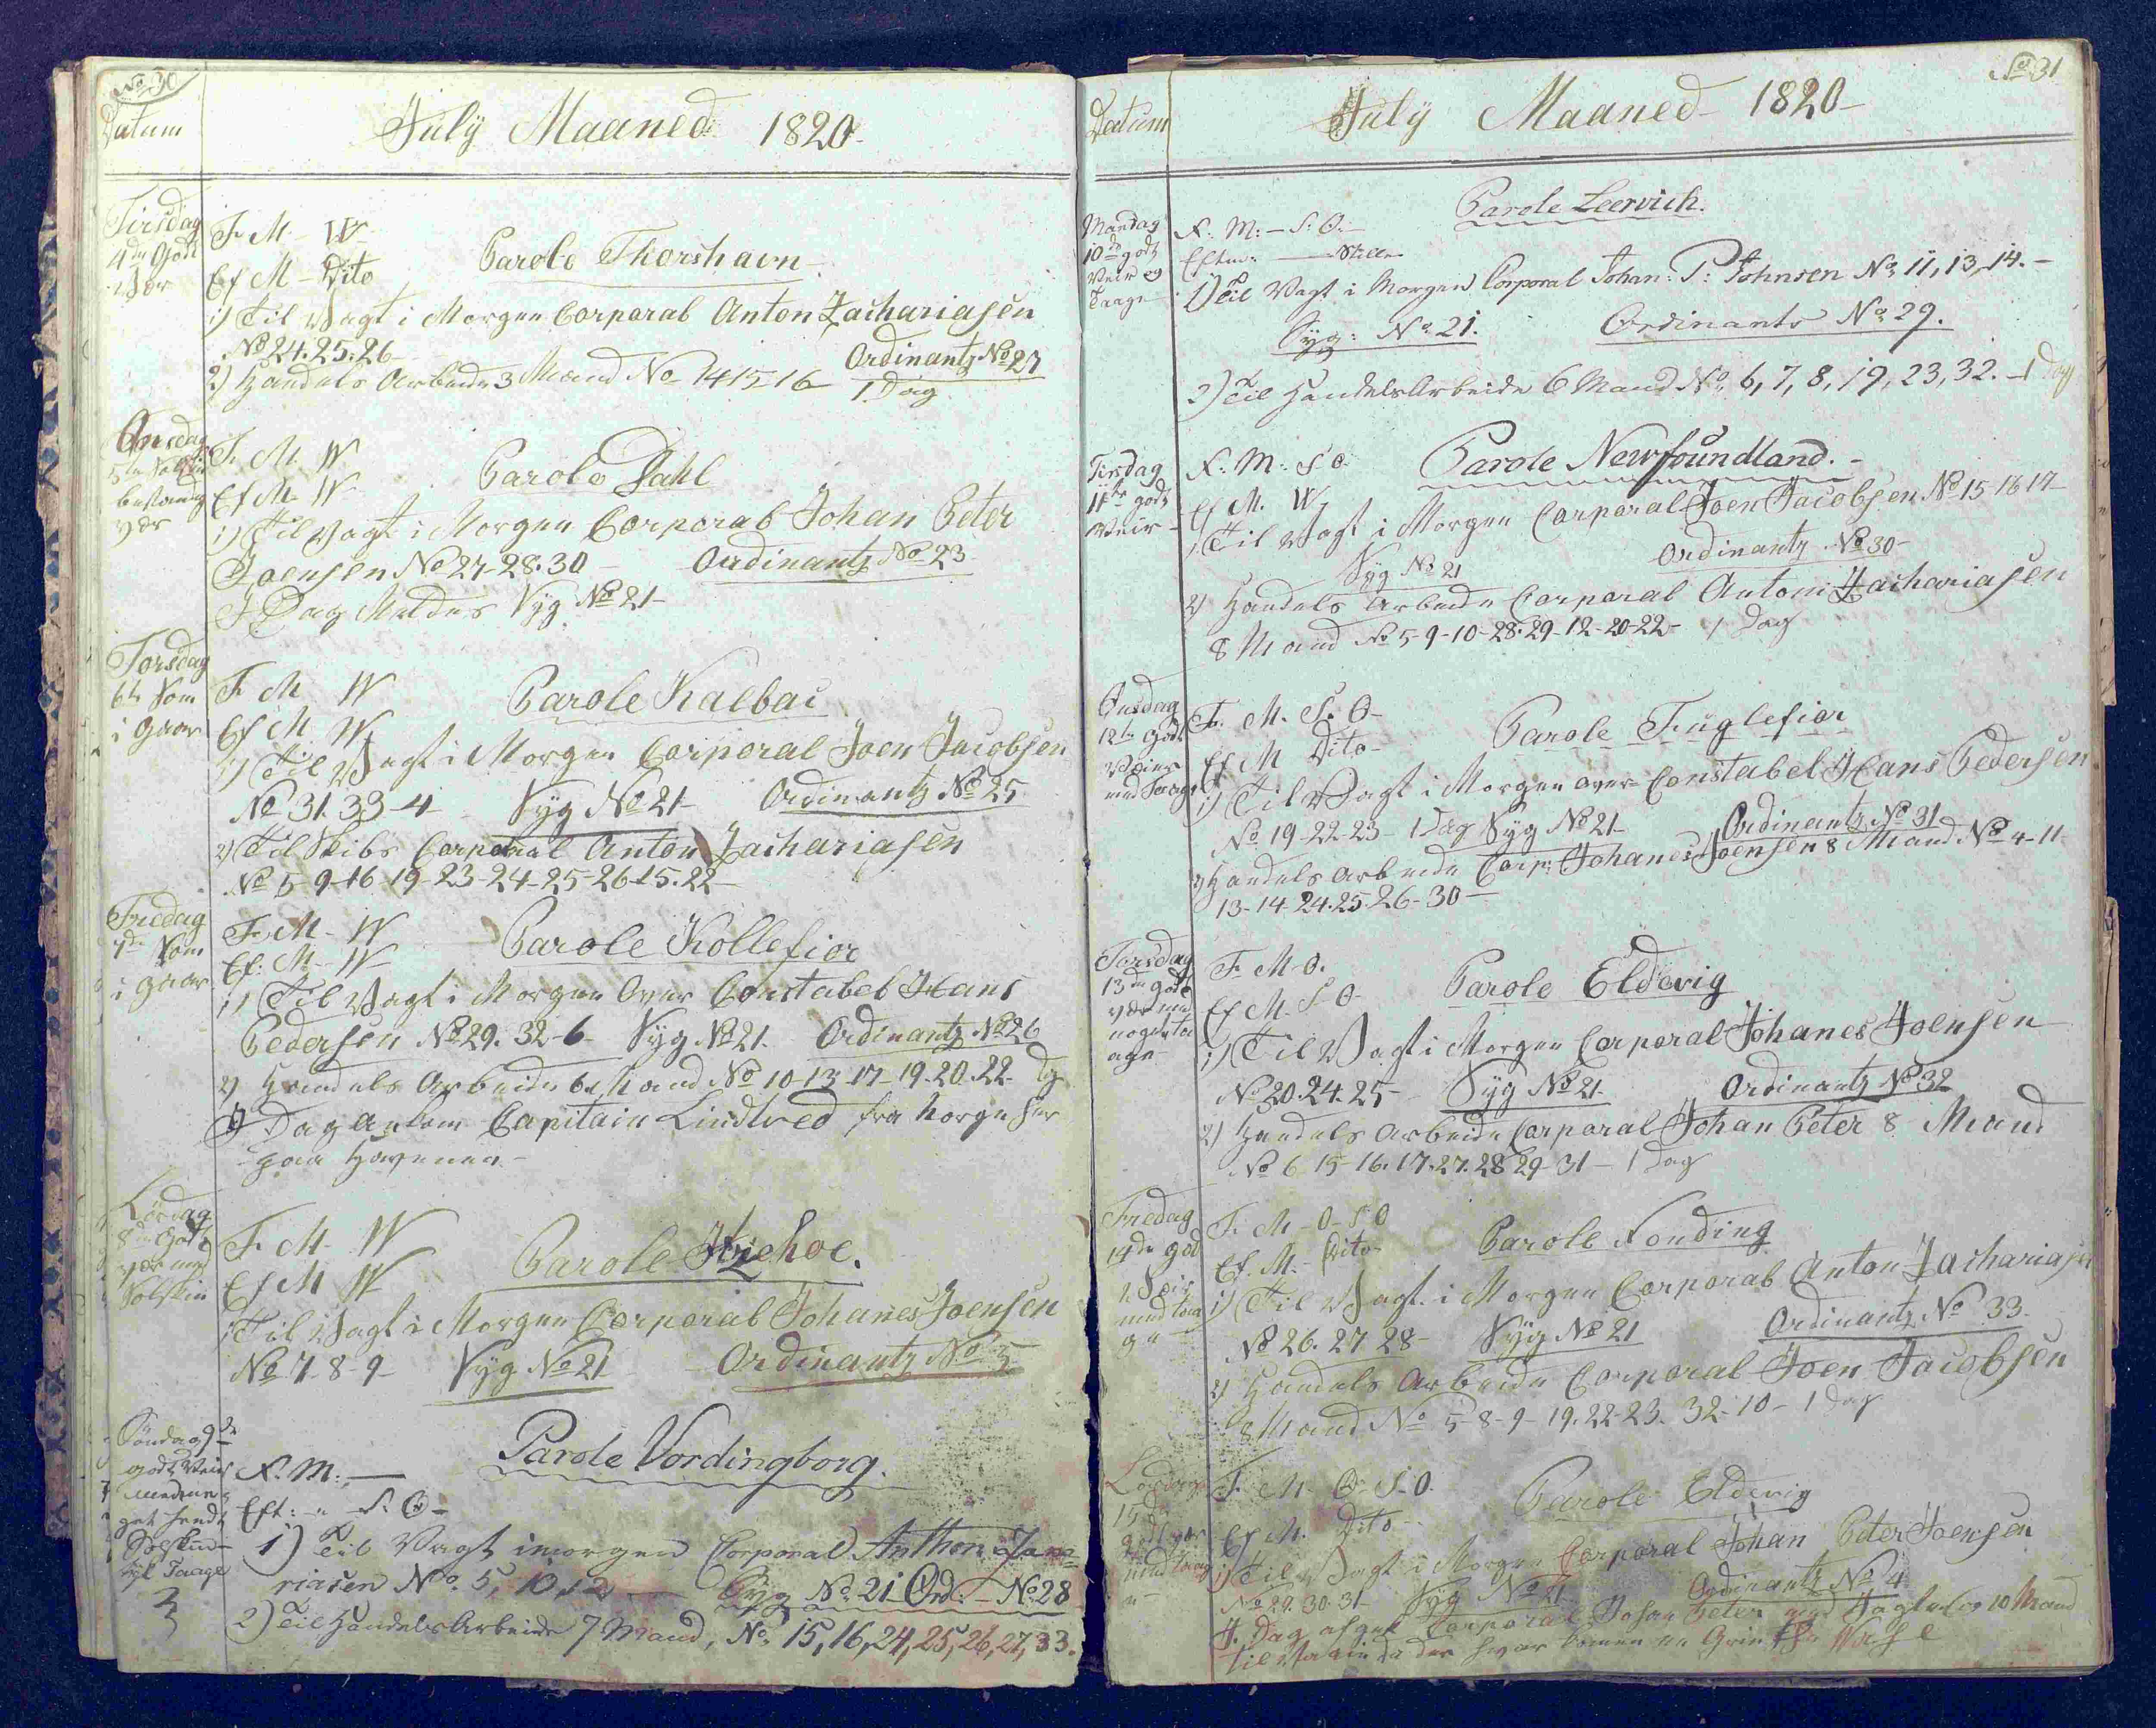 No 30
Datum
July Maaned 1820
Tirsdag
4de Godt
Vær
F. M. W
Ef M - Dito
Parole Thorshavn
1) Til Vagt i Morgen Corporal Anton Zachariasen
No 24. 25. 26
Ordinantz No 27
2) Handels Arbeide 3 Mand No 14 15 16
1 Dag
Onsdag
5te Solskin
bestandig
vær
F. M. W
Ef M. W
Parole Dahl
1) Til Vagt i Morgen Corporal Johan Peter
Joensen No 27-28.30
Ordinantz No 23
I Dag Meldes Syg No 21
Torsdag
6te Som
i Gaar
F. M W
Ef M W
Parole Kalbac
1) Til Vagt i Morgen Corporal Joen Jacobsen
No 31. 33-4 Syg No 21 Ordinantz No 25
2) Til Skibs Corporal Anton Zachariasen
No 5-9-16-19-23-24-25-26-15.22
Fredag
7de Som
i gaar
F. M. W
Ef: M. W
Parole Kollefior
1) Til Vagt i Morgen Over Constabel Hans
Pedersen No 29. 32-6 Syg No 21. Ordinantz No 26
2) Handels Arbeide 6 Mand No 10-13-17-19.20.22 Dg
I Dag ankom Capitain Lindtved fra Norge her
paa Havenen
Lørdag
8de Godt
vær med
Solskin
F. M. W
Ef M W
Parole Itzehoe.
1) Til Vagt i Morgen Corporal Johanes Joensen
No 7-8-9 Syg No 21 Ordinantz No 5
Søndag 9de
godt Veir
med no-
get
Solskin
Taage
F. M: —
Eft: " S. O
Parole Vordingborg.
1) Til Vagt imorgen Corporal Anthon Zacha-
riasen No 5, 10, 12 Syg No 21 Ord: No 28
2) Til Handels Arbeide 7 Mand, No 15, 16, 24, 25, 26, 27, 33.
No 31
Datum
July Maaned 1820
Mandag
10de godt
Veir og
Taage
F: M: - S: O.
Efterm: Stille
Parole Leervich.
1) Til Vagt i Morgen Corporal Johan: P: Johnsen No 11, 13, 14.
Syg: No 21. Ordinants No 29.
2) Til Handels Arbeide 6 Mand No 6, 7, 8, 19, 23, 32. - 1 Dag
Tirsdag
11te godt
Veir
F: M: S O.
Ef M. W
Parole Newfoundland.
1) Til Vagt i Morgen Corporal Joen Jacobsen No 15-16 17
Syg No 21 Ordinantz No 30
2) Handels Arbeide Corporal Antoni Zachariasen
8 Mand No 5-9-10-28-29-12-20-22- 1 Dag
Onsdag
12te Godt
Veier
med Taage
F. M. S. O
Ef M Dito
Parole Fuglefior
1) Til Vagt i Morgen over Constabel Hans Pedersen
No 19-22-23- 1 Dag Syg No 21 Ordinantz No 31
2) Handels arbeide Corp: Johanes Joensen 8 Mand No 4-11
13-14-24.25-26-30
Torsdag
13de godt
vær med
noget ta
age
F. M-O.
Ef M. S O
Parole Eldevig
1) Til Vagt i Morgen Corporal Johanes Joensen
No 20.24.25 Syg No 21. Ordinantz No 32
2) Handels Arbeide Corporal Johan Peter 8 Mand
No 6-15-16.17.27.28 29-31 - 1 Dag
Fredag
14de god
Veir
med taa
ge
F. M-O-S O
Ef. M. Dito
Parole Fonding
1) Til Vagt i Morgen Corporal Anton Zachariasen
No 26. 27 28 Syg No 21 Ordinantz No 33
2) Handels Arbeide Corporal Joen Jacobsen
8 Mand No 5-8-9-19.22-23. 32-10 - 1 Dag
Lørdag
15de
godt vær
med taag
e
F. M. O-S-O.
Ef M. Dito
Parole Eldevig
1) Til Vagt i Morgen Corporal Johan Peter Joensen
No 29. 30. 31 Syg No 21 Ordinantz No 4
I Dag afgik Corporal Johan Peter med 10 Mand
til da der